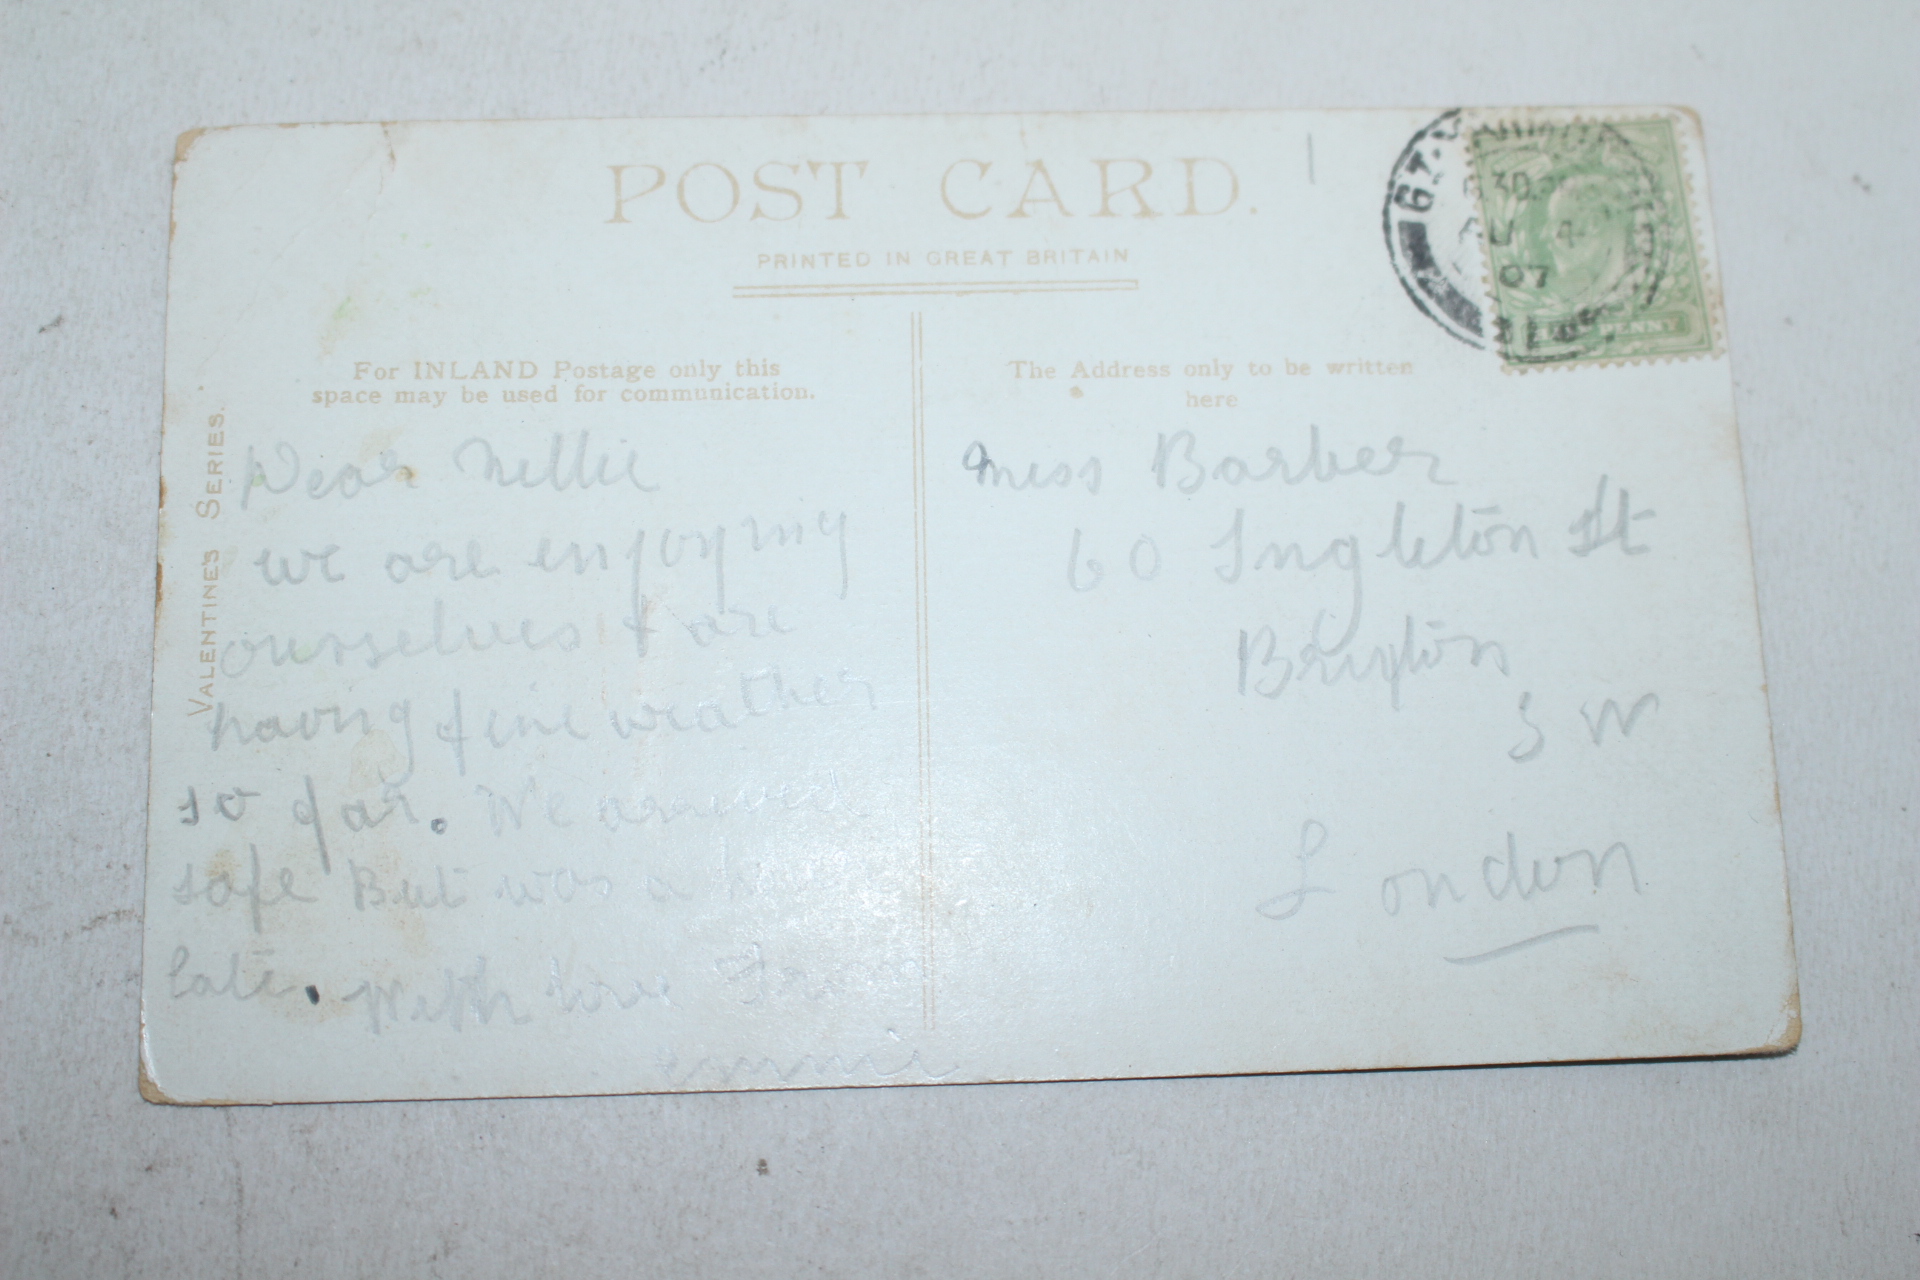 POST CARD.
PRINTED IN GREAT BRITAIN
For INLAND Postage only this
space may be used for communication.
The Address only to be written
here
VALENTINE'S SERIES.
Dear Nellie
we are enjoying
ourselves & are
having fine weather
so far. We arrived
safe But was a
late. With love From
emmie
Miss Barber
60 Singleton St
Brixton
S W
London
GT. YARMOUTH
30
AU 4
07
HALFPENNY